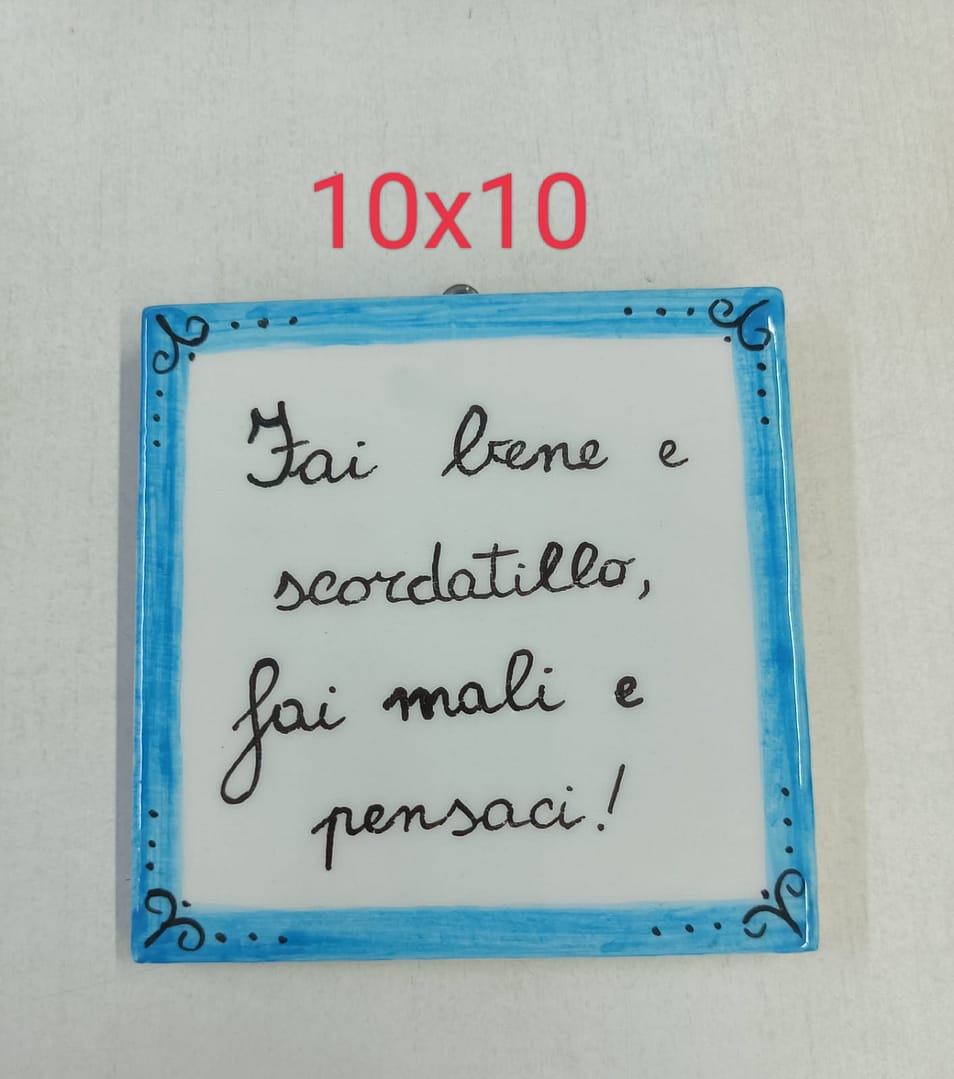 10x10
Fai bene e
scordatillo,
fai mali e
pensaci!